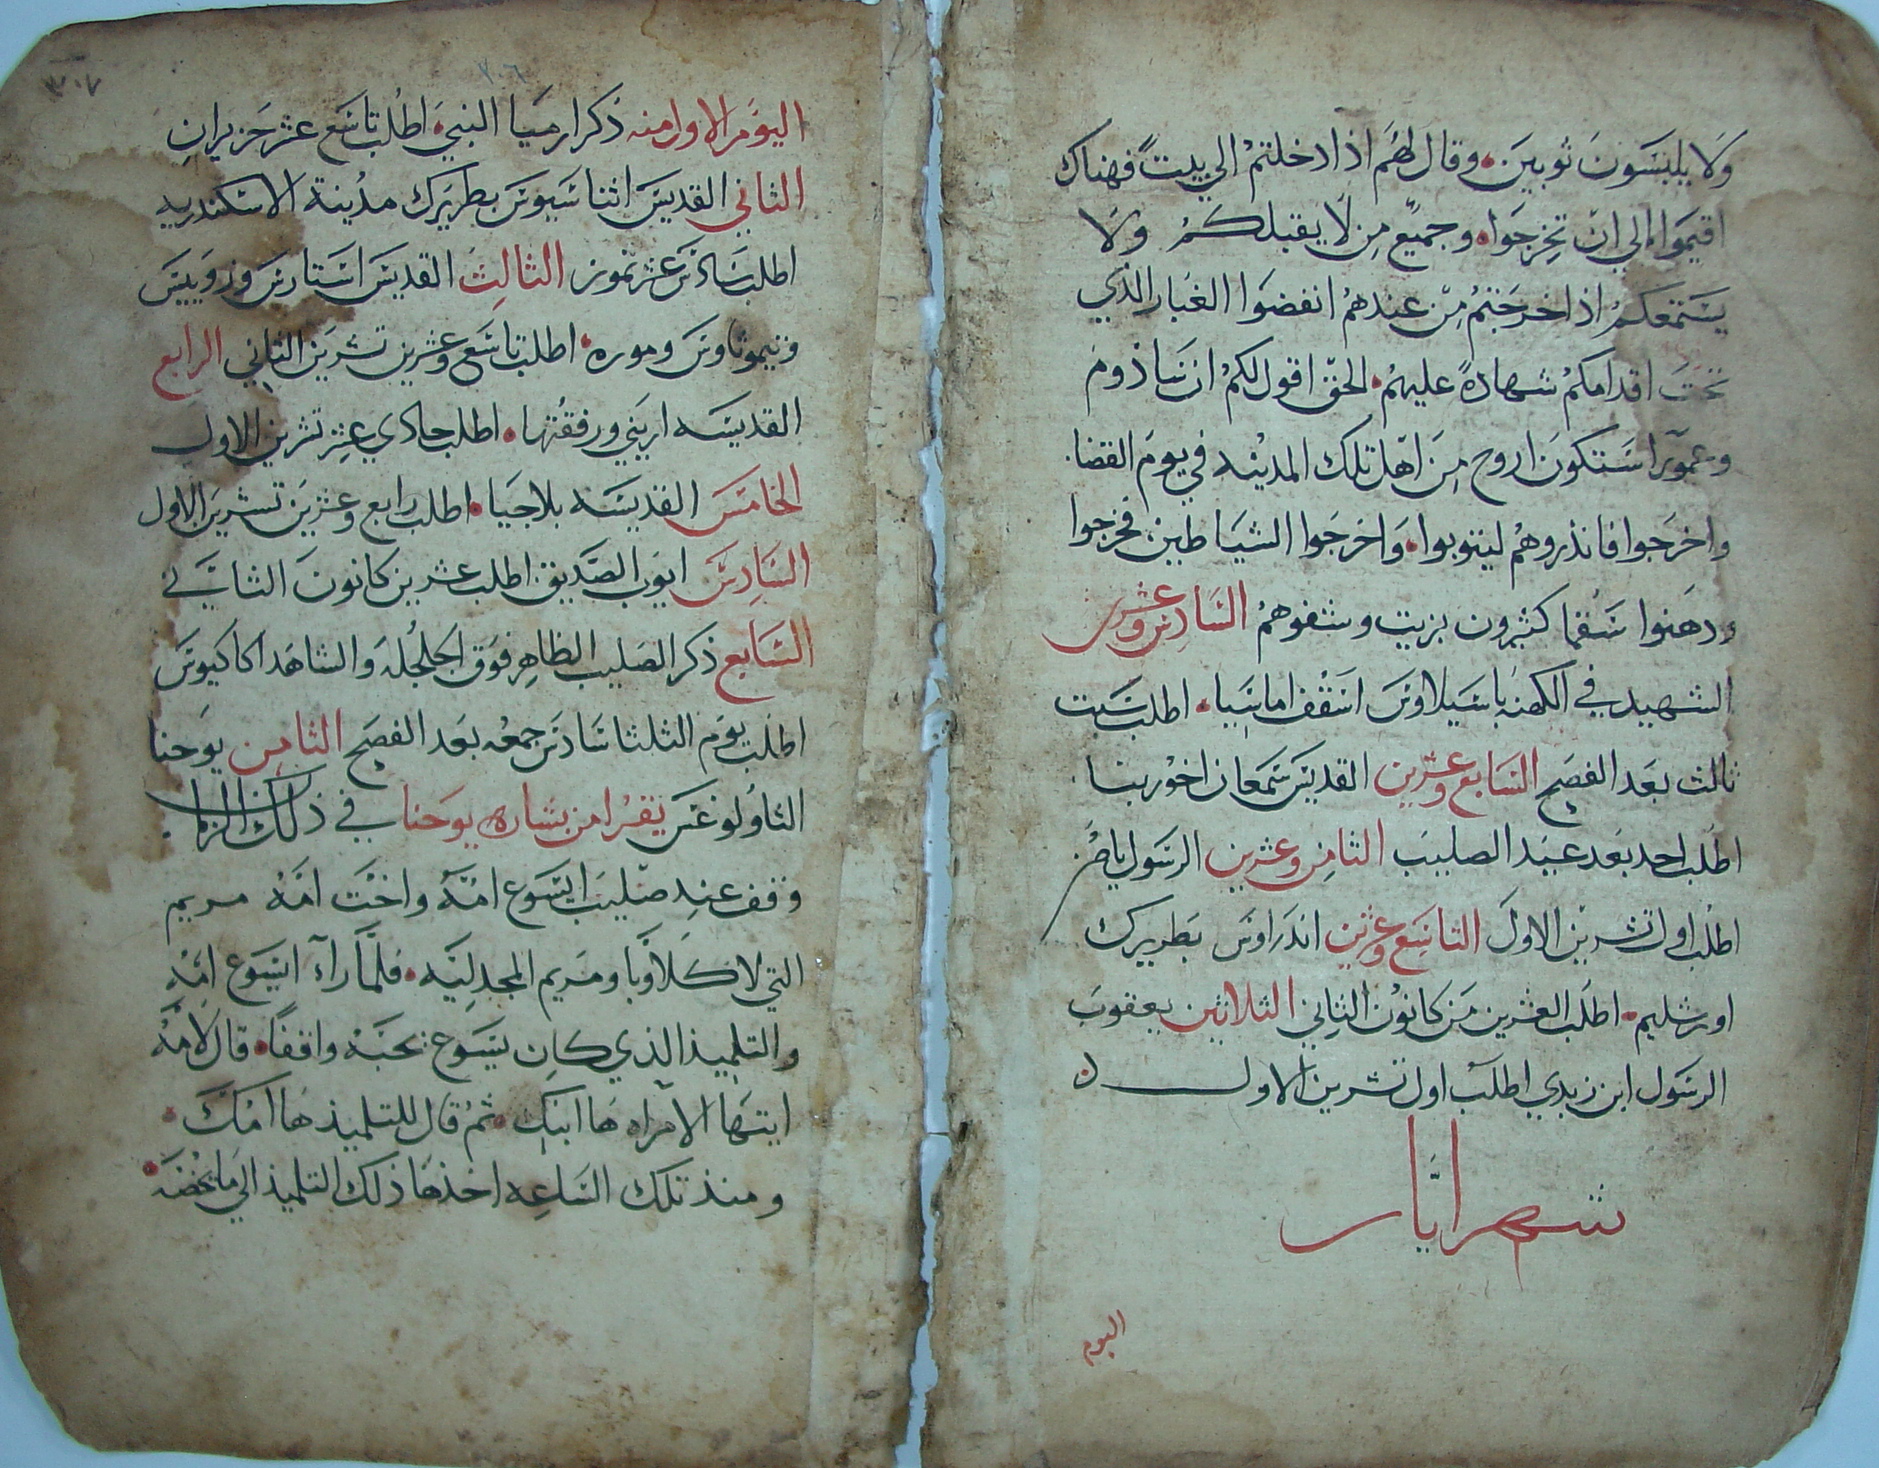 ولا يلبسون ثوبين وقال لهم اذا دخلتم الي بيت فهناك
اقيموا الي ان تخرجوا وجميع من لا يقبلكم ولا
يستمعكم اذا خرجتم من عندهم انفضوا الغبار الذي
تحت اقدامكم شهادة عليهم الحق اقول لكم ان سادوم
وعمورا ستكون اروح من اهل تلك المدينه في يوم القضا
واخرجوا فانذروهم ليتوبوا واخرجوا الشياطين فخرجوا
ودهنوا سقما كثيرون بزيت وشفوهم السادس وعشرين
الشهيد في الكهنه باسيلاوس اسقف اماسيا اطلب سبت
ثالث بعد الفصح السابع وعشرين القديس سمعان اخو ربنا
اطلب احد بعد عيد الصليب الثامن وعشرين الرسول
اطلب اول تشرين الاول التاسع وعشرين اندراوس بطريرك
اورشليم اطلب العشرين من كانون الثاني الثلاثين يعقوب
الرسول ابن زبدي اطلب اول تشرين الاول
شهر ايار
اليوم
٣٠٧
٣٠٦
اليوم الاول منه ذكر ارميا النبي اطلب تاسع عشر حزيران
الثاني القديس اثناسيوس بطريرك مدينة الاسكندريه
اطلب سادس عشر تموز الثالث القديس
وتيموثاوس وموره اطلب تاسع وعشرين تشرين الثاني الرابع
القديسه اريني ورفقتها اطلب حادي عشر تشرين الاول
الخامس القديسه بلاجيا اطلب رابع وعشرين تشرين الاول
السادس ايوب الصديق اطلب عشرين كانون الثاني
السابع ذكر الصليب الظاهر فوق الجلجله والشاهد اكاكيوس
اطلب يوم الثلثا سادس جمعه بعد الفصح الثامن يوحنا
الثاولوغس يقرا من بشاره يوحنا في ذلك الزمان
وقف عند صليب ايسوع امه واخت امه مريم
التي لاكلاوبا ومريم المجدليه فلما رآ ايسوع امه
والتلميذ الذي كان يسوع يحبه واقفا قال لامه
ايتها الامراه ها ابنك ثم قال للتلميذ ها امك
ومنذ تلك الساعه اخذها ذلك التلميذ الي ما يخصه